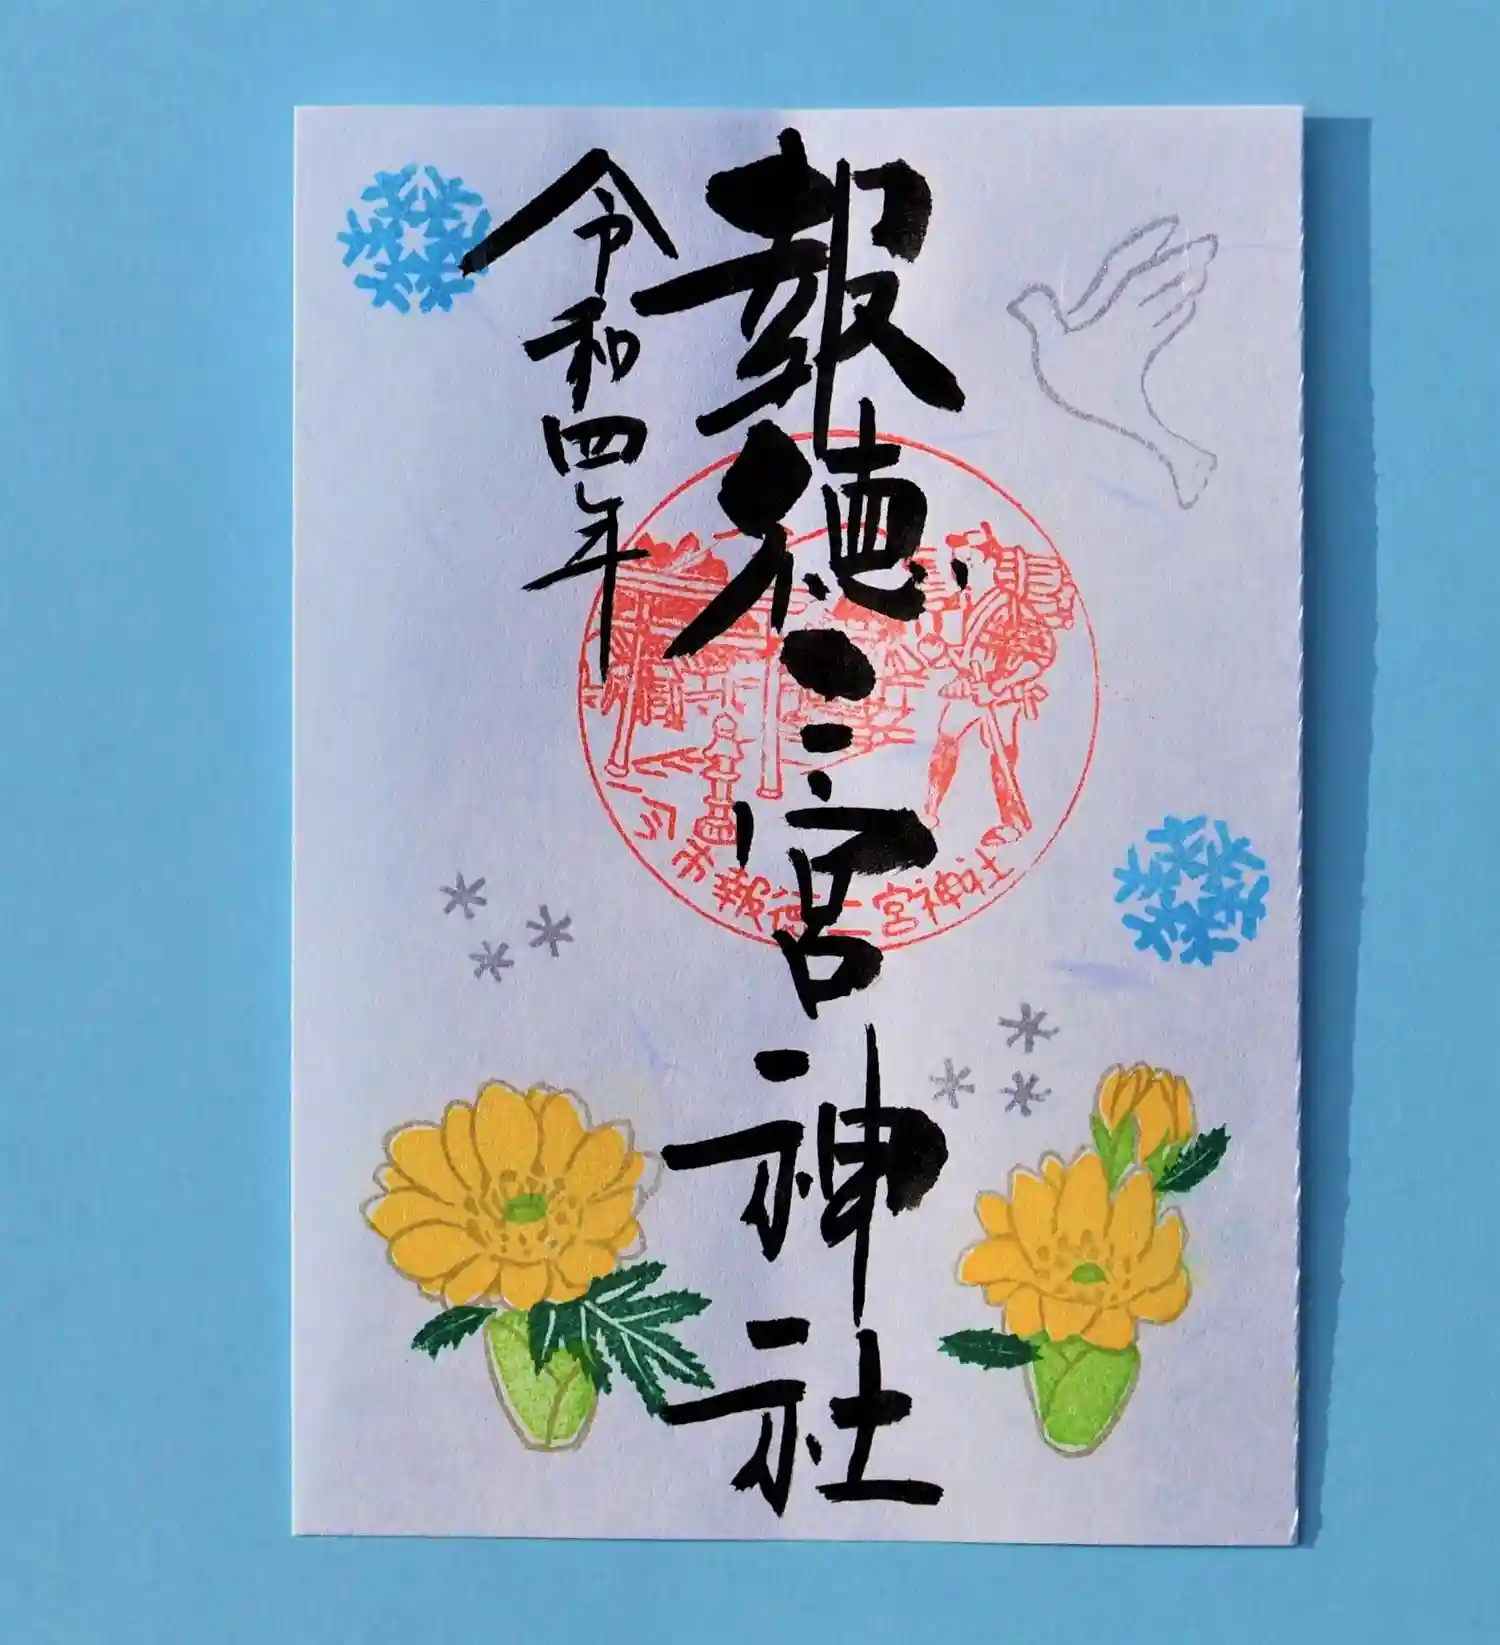 報徳二宮神社
令和四年
今市報徳二宮神社